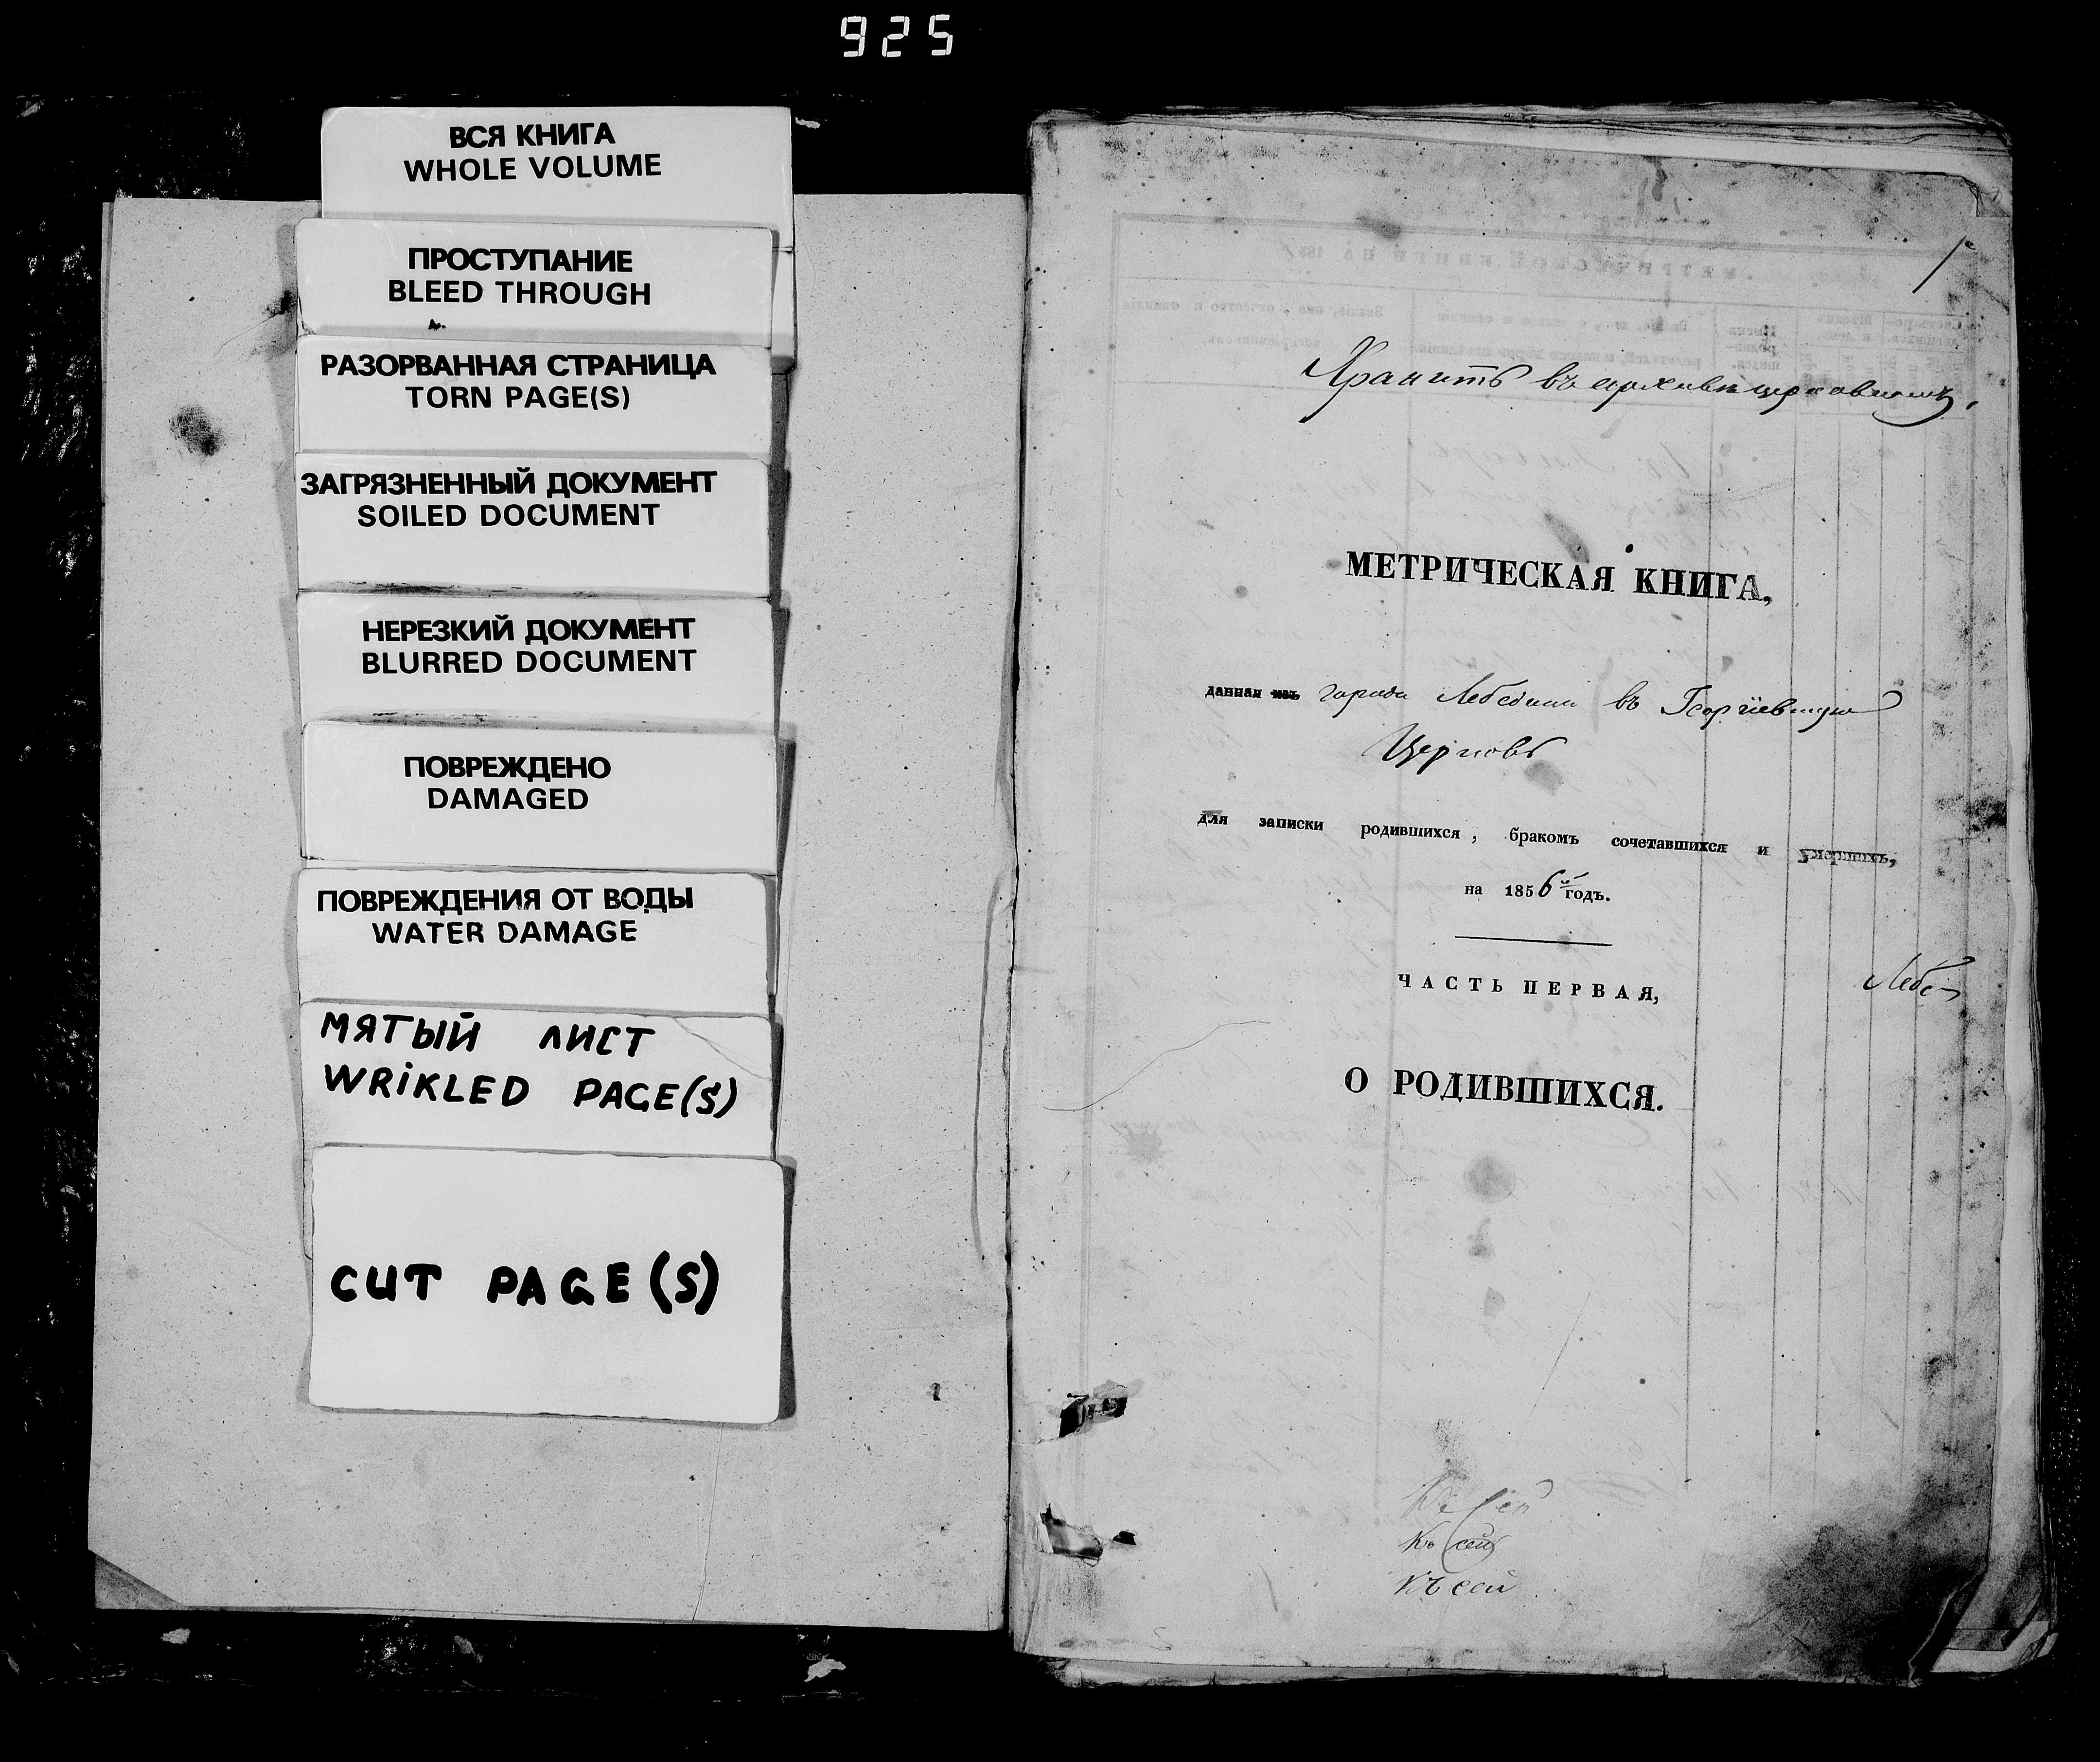 925
ВСЯ КНИГА
WHOLE VOLUME
ПРОСТУПАНИЕ
BLEED THROUGH
РАЗОРВАННАЯ СТРАНИЦА
TORN PAGE(S)
ЗАГРЯЗНЕННЫЙ ДОКУМЕНТ
SOILED DOCUMENT
НЕРЕЗКИЙ ДОКУМЕНТ
BLURRED DOCUMENT
ПОВРЕЖДЕНО
DAMAGED
ПОВРЕЖДЕНИЯ ОТ ВОДЫ
WATER DAMAGE
МЯТЫЙ ЛИСТ
WRIKLED PAGE(S)
CUT PAGE(S)
1
Хранить въ архивѣ церковномъ,
МЕТРИЧЕСКАЯ КНИГА,
данная изъ города Лебедина въ Георгіевскую
Церковь
для записки родившихся, бракомъ сочетавшихся и умершихъ,
на 1856й годъ.
ЧАСТЬ ПЕРВАЯ,
Лебе-
О РОДИВШИХСЯ.
Къ сей
Къ сей
Къ сей